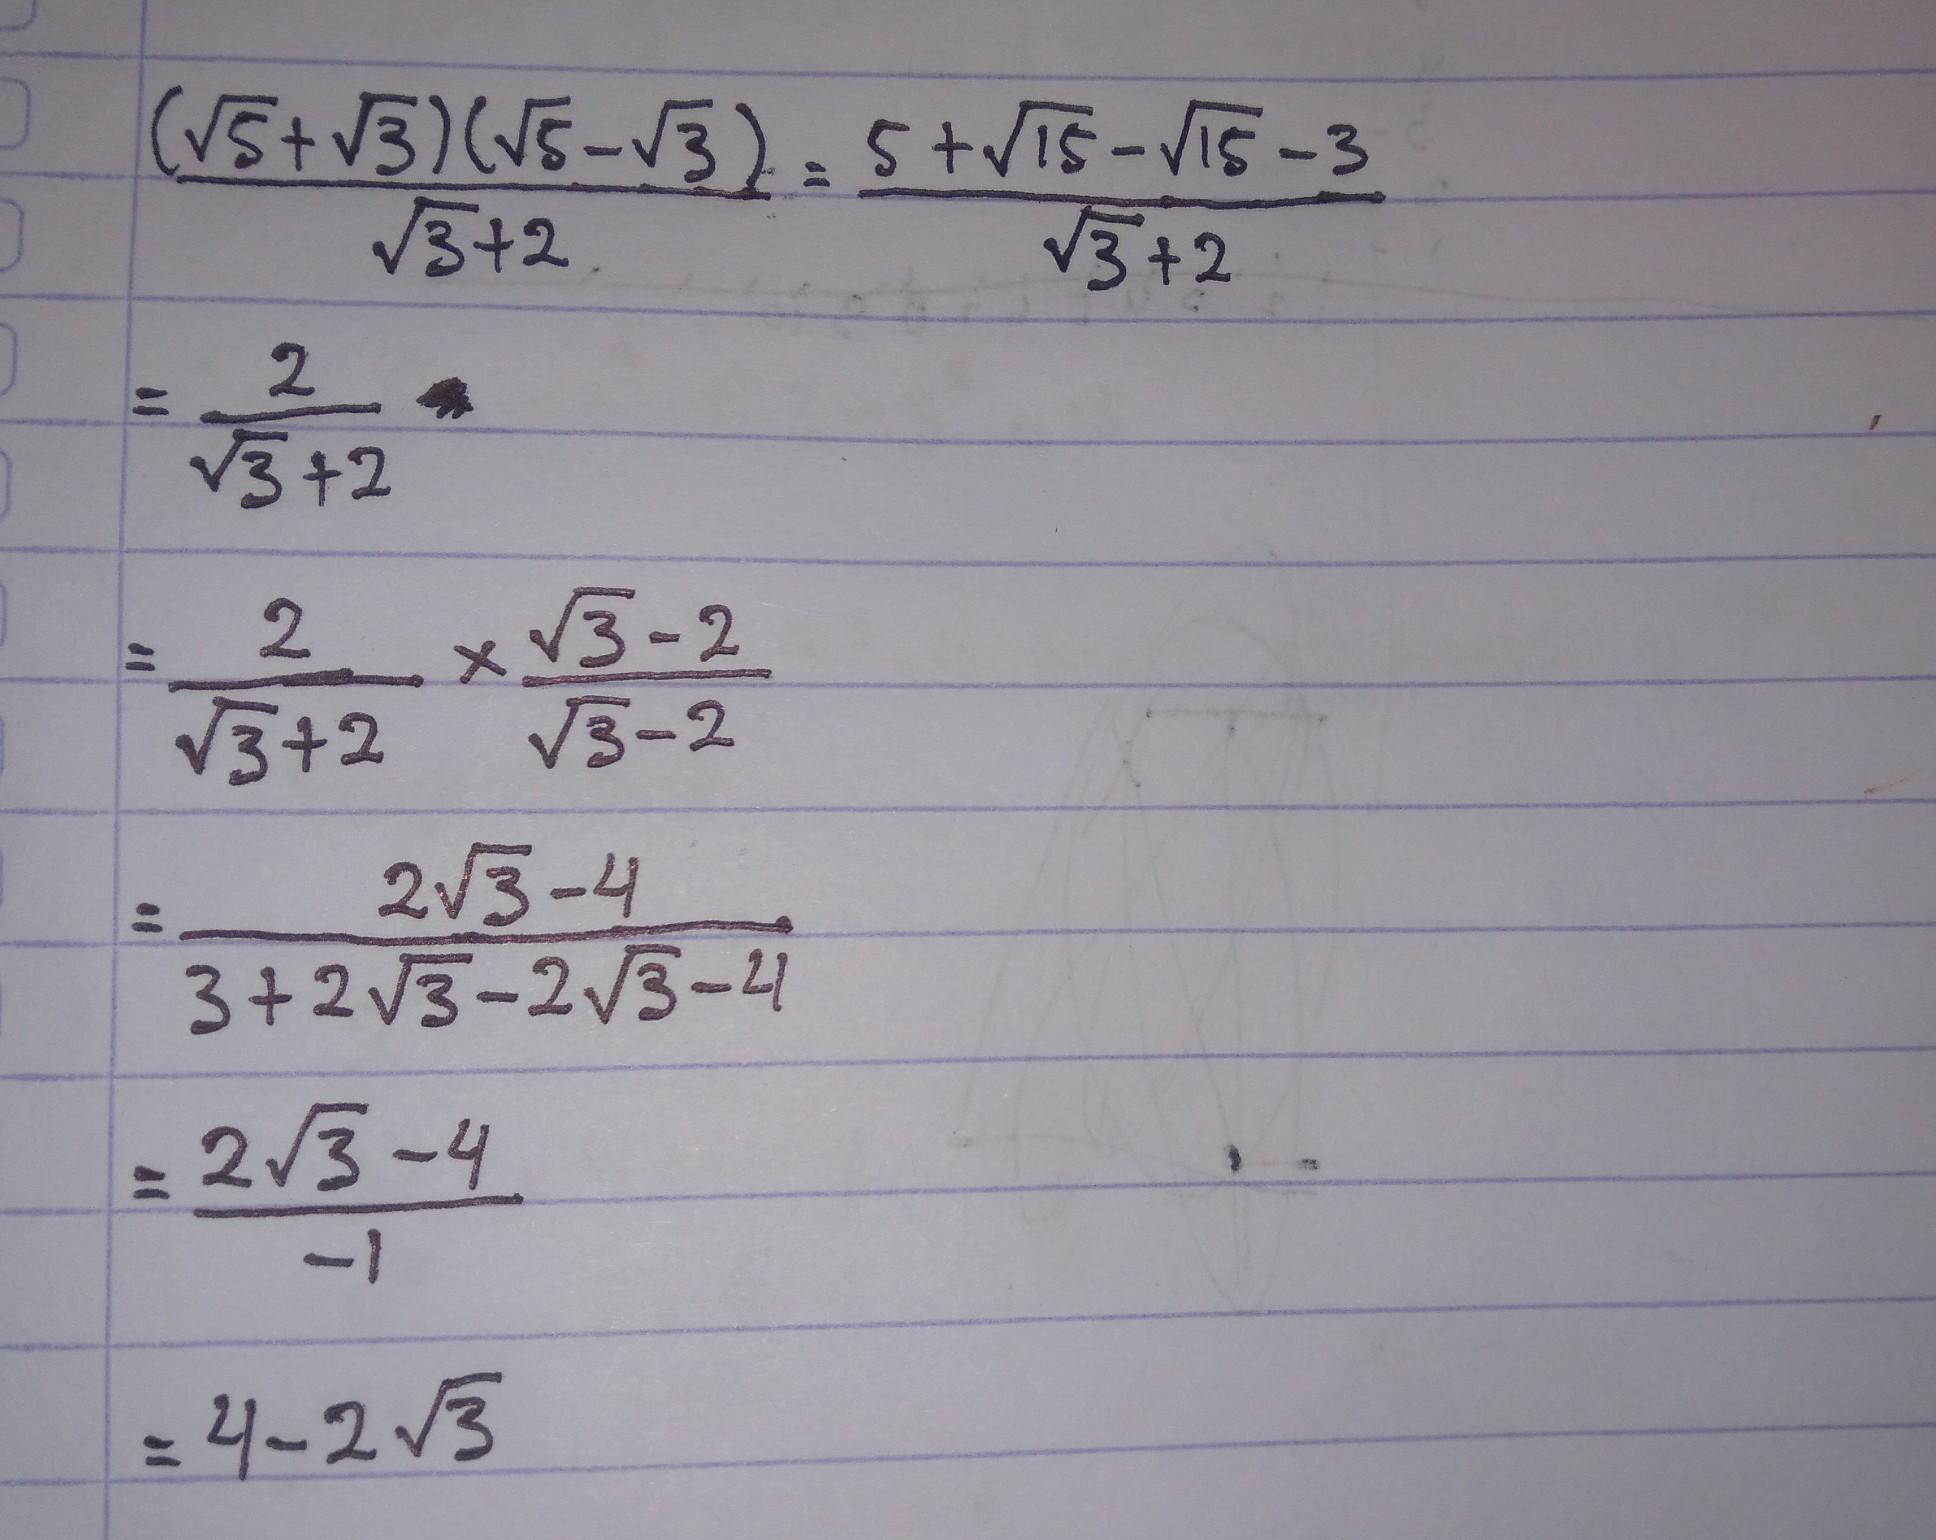 (√5+√3)(√5-√3)/(√3+2) = (5+√15-√15-3)/(√3+2)
= 2/(√3+2)
= 2/(√3+2) × (√3-2)/(√3-2)
= (2√3-4)/(3+2√3-2√3-4)
= (2√3-4)/(-1)
= 4-2√3